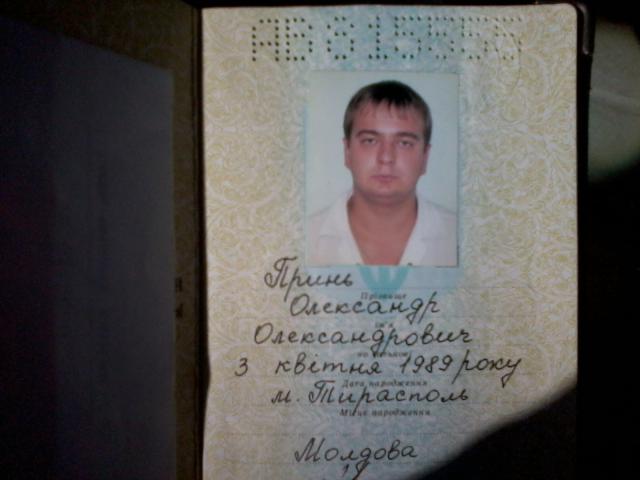 Принь
Прізвище
Олександр
Ім'я
Олександрович
по батькові
3 квітня 1989 року
Дата народження
м. Тирасполь
Місце народження
Молдова